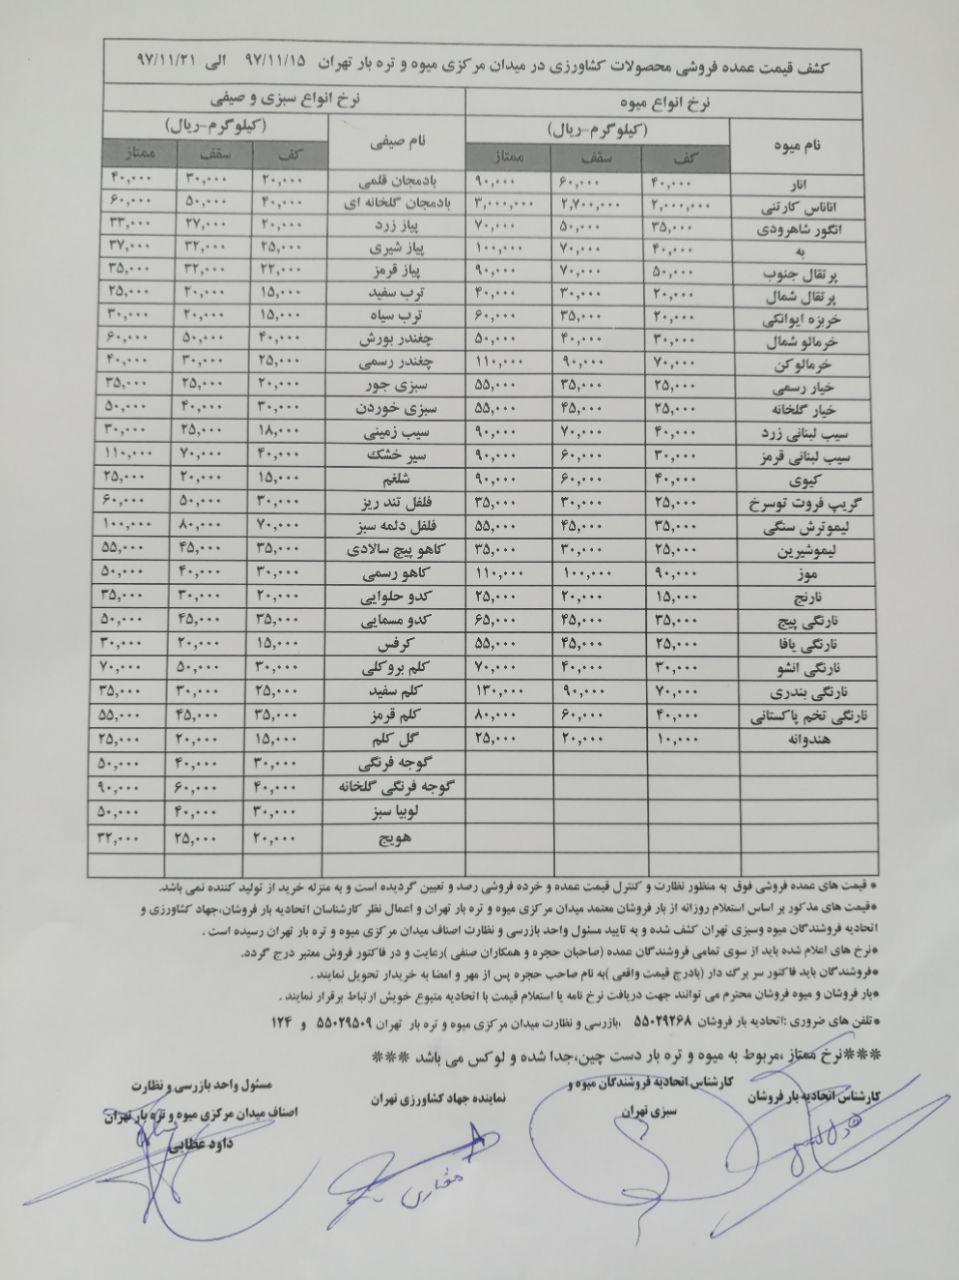 کشف قیمت عمده فروشی محصولات کشاورزی در میدان مرکزی میوه و تره بار تهران ۹۷/۱۱/۱۵ الی ۹۷/۱۱/۲۱
نرخ انواع میوه نرخ انواع سبزی و صیفی
نام میوه (کیلوگرم-ریال) نام صیفی (کیلوگرم-ریال)
کف سقف ممتاز کف سقف ممتاز
انار ۴۰,۰۰۰ ۶۰,۰۰۰ ۹۰,۰۰۰ بادمجان قلمی ۲۰,۰۰۰ ۳۰,۰۰۰ ۴۰,۰۰۰
اناناس کارتنی ۲,۰۰۰,۰۰۰ ۲,۷۰۰,۰۰۰ ۳,۰۰۰,۰۰۰ بادمجان گلخانه ای ۴۰,۰۰۰ ۵۰,۰۰۰ ۶۰,۰۰۰
انگور شاهرودی ۳۵,۰۰۰ ۵۰,۰۰۰ ۷۰,۰۰۰ پیاز زرد ۲۰,۰۰۰ ۲۷,۰۰۰ ۳۳,۰۰۰
به ۴۰,۰۰۰ ۷۰,۰۰۰ ۱۰۰,۰۰۰ پیاز شیری ۲۵,۰۰۰ ۳۲,۰۰۰ ۳۷,۰۰۰
پرتقال جنوب ۵۰,۰۰۰ ۷۰,۰۰۰ ۹۰,۰۰۰ پیاز قرمز ۲۲,۰۰۰ ۳۲,۰۰۰ ۳۵,۰۰۰
پرتقال شمال ۲۰,۰۰۰ ۳۰,۰۰۰ ۴۰,۰۰۰ ترب سفید ۱۵,۰۰۰ ۲۰,۰۰۰ ۲۵,۰۰۰
خربزه ایوانکی ۲۰,۰۰۰ ۳۵,۰۰۰ ۶۰,۰۰۰ ترب سیاه ۱۵,۰۰۰ ۲۰,۰۰۰ ۳۰,۰۰۰
خرمالو شمال ۳۰,۰۰۰ ۴۰,۰۰۰ ۵۰,۰۰۰ چغندر بورش ۴۰,۰۰۰ ۵۰,۰۰۰ ۶۰,۰۰۰
خرمالوکن ۷۰,۰۰۰ ۹۰,۰۰۰ ۱۱۰,۰۰۰ چغندر رسمی ۲۵,۰۰۰ ۳۰,۰۰۰ ۴۰,۰۰۰
خیار رسمی ۲۵,۰۰۰ ۳۵,۰۰۰ ۵۵,۰۰۰ سبزی جور ۲۰,۰۰۰ ۲۵,۰۰۰ ۳۵,۰۰۰
خیار گلخانه ۲۵,۰۰۰ ۴۵,۰۰۰ ۵۵,۰۰۰ سبزی خوردن ۳۰,۰۰۰ ۴۰,۰۰۰ ۵۰,۰۰۰
سیب لبنانی زرد ۴۰,۰۰۰ ۷۰,۰۰۰ ۹۰,۰۰۰ سیب زمینی ۱۸,۰۰۰ ۲۵,۰۰۰ ۳۰,۰۰۰
سیب لبنانی قرمز ۳۰,۰۰۰ ۶۰,۰۰۰ ۹۰,۰۰۰ سیر خشک ۴۰,۰۰۰ ۷۰,۰۰۰ ۱۱۰,۰۰۰
کیوی ۴۰,۰۰۰ ۶۰,۰۰۰ ۹۰,۰۰۰ شلغم ۱۵,۰۰۰ ۲۰,۰۰۰ ۲۵,۰۰۰
گریپ فروت توسرخ ۲۵,۰۰۰ ۳۰,۰۰۰ ۳۵,۰۰۰ فلفل تند ریز ۳۰,۰۰۰ ۵۰,۰۰۰ ۶۰,۰۰۰
لیموترش سنگی ۳۵,۰۰۰ ۴۵,۰۰۰ ۵۵,۰۰۰ فلفل دلمه سبز ۷۰,۰۰۰ ۸۰,۰۰۰ ۱۰۰,۰۰۰
لیموشیرین ۲۵,۰۰۰ ۳۰,۰۰۰ ۳۵,۰۰۰ کاهو پیچ سالادی ۳۵,۰۰۰ ۴۵,۰۰۰ ۵۵,۰۰۰
موز ۹۰,۰۰۰ ۱۰۰,۰۰۰ ۱۱۰,۰۰۰ کاهو رسمی ۳۰,۰۰۰ ۴۰,۰۰۰ ۵۰,۰۰۰
نارنج ۱۵,۰۰۰ ۲۰,۰۰۰ ۲۵,۰۰۰ کدو حلوایی ۲۰,۰۰۰ ۳۰,۰۰۰ ۳۵,۰۰۰
نارنگی پیج ۳۵,۰۰۰ ۴۵,۰۰۰ ۶۵,۰۰۰ کدو مسمایی ۳۵,۰۰۰ ۴۵,۰۰۰ ۵۰,۰۰۰
نارنگی یافا ۲۵,۰۰۰ ۴۵,۰۰۰ ۵۵,۰۰۰ کرفس ۱۵,۰۰۰ ۲۰,۰۰۰ ۳۰,۰۰۰
نارنگی انشو ۳۰,۰۰۰ ۴۰,۰۰۰ ۷۰,۰۰۰ کلم بروکلی ۳۰,۰۰۰ ۵۰,۰۰۰ ۷۰,۰۰۰
نارنگی بندری ۷۰,۰۰۰ ۹۰,۰۰۰ ۱۳۰,۰۰۰ کلم سفید ۲۵,۰۰۰ ۳۰,۰۰۰ ۳۵,۰۰۰
نارنگی تخم پاکستانی ۴۰,۰۰۰ ۶۰,۰۰۰ ۸۰,۰۰۰ کلم قرمز ۳۵,۰۰۰ ۴۵,۰۰۰ ۵۵,۰۰۰
هندوانه ۱۰,۰۰۰ ۲۰,۰۰۰ ۲۵,۰۰۰ گل کلم ۱۵,۰۰۰ ۲۰,۰۰۰ ۲۵,۰۰۰
گوجه فرنگی ۳۰,۰۰۰ ۴۰,۰۰۰ ۵۰,۰۰۰
گوجه فرنگی گلخانه ۴۰,۰۰۰ ۶۰,۰۰۰ ۹۰,۰۰۰
لوبیا سبز ۳۰,۰۰۰ ۴۰,۰۰۰ ۵۰,۰۰۰
هویج ۲۰,۰۰۰ ۲۵,۰۰۰ ۳۲,۰۰۰
* قیمت های عمده فروشی فوق به منظور نظارت و کنترل قیمت عمده و خرده فروشی رصد و تعیین گردیده است و به منزله خرید از تولید کننده نمی باشد.
*قیمت های مذکور بر اساس استعلام روزانه از بار فروشان معتمد میدان مرکزی میوه و تره بار تهران و اعمال نظر کارشناسان اتحادیه بار فروشان،جهاد کشاورزی و
اتحادیه فروشندگان میوه وسبزی تهران کشف شده و به تایید مسئول واحد بازرسی و نظارت اصناف میدان مرکزی میوه و تره بار تهران رسیده است .
*نرخ های اعلام شده باید از سوی تمامی فروشندگان عمده (صاحبان حجره و همکاران صنفی )رعایت و در فاکتور فروش معتبر درج گردد.
*فروشندگان باید فاکتور سر برگ دار (بادرج قیمت واقعی )به نام صاحب حجره پس از مهر و امضا به خریدار تحویل نمایند .
*بار فروشان و میوه فروشان محترم می توانند جهت دریافت نرخ نامه یا استعلام قیمت با اتحادیه متبوع خویش ارتباط برقرار نمایند .
*تلفن های ضروری :اتحادیه بار فروشان ۵۵۰۲۹۲۶۸ ،بازرسی و نظارت میدان مرکزی میوه و تره بار تهران ۵۵۰۲۹۵۰۹ و ۱۲۴
***نرخ ممتاز ،مربوط به میوه و تره بار دست چین،جدا شده و لوکس می باشد ***
کارشناس اتحادیه بار فروشان
کارشناس اتحادیه فروشندگان میوه و
سبزی تهران
نماینده جهاد کشاورزی تهران
مسئول واحد بازرسی و نظارت
اصناف میدان مرکزی میوه و تره بار تهران
داود عطایی